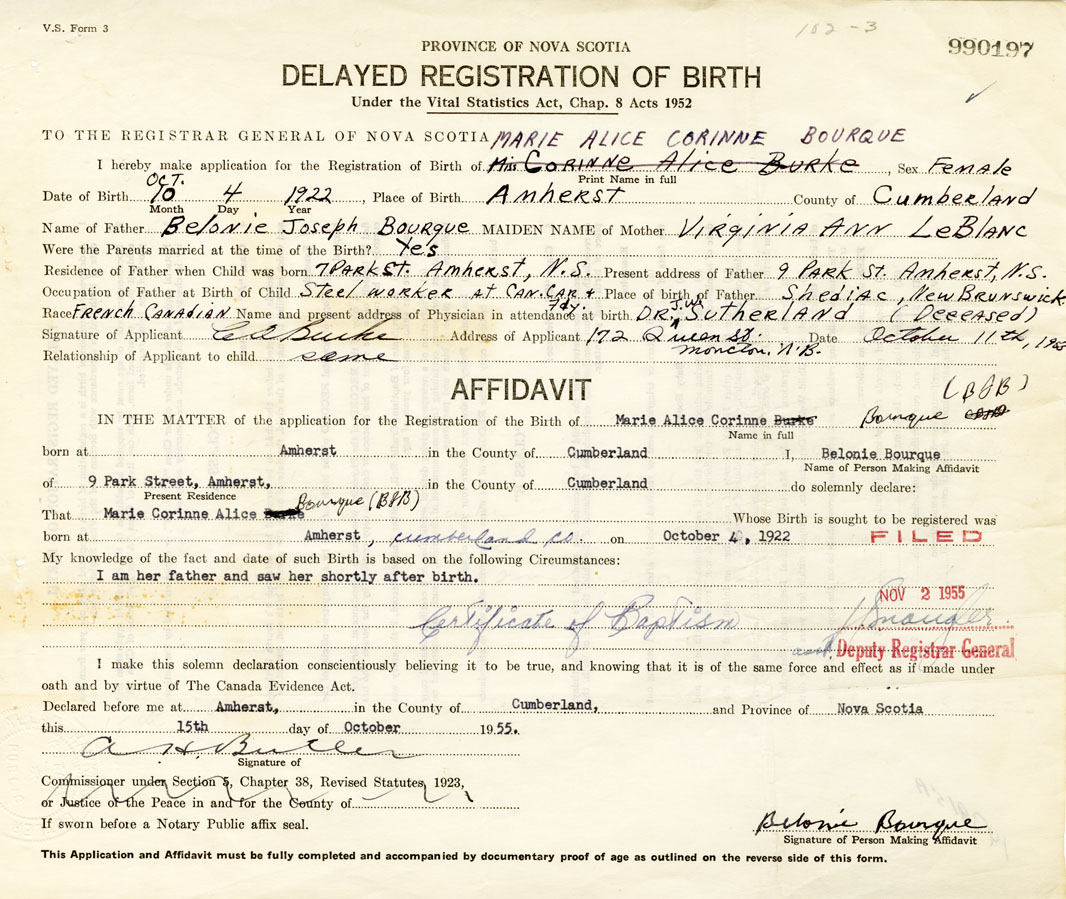 V.S. Form 3
102-3
990197
PROVINCE OF NOVA SCOTIA
DELAYED REGISTRATION OF BIRTH
Under the Vital Statistics Act, Chap. 8 Acts 1952
TO THE REGISTRAR GENERAL OF NOVA SCOTIA MARIE ALICE CORINNE BOURQUE
I hereby make application for the Registration of Birth of Miss Corinne Alice Burke, Sex Female
Print Name in full
OCT.
Date of Birth 10 4 1922, Place of Birth Amherst County of Cumberland
Month Day Year
Name of Father Belonie Joseph Bourque MAIDEN NAME of Mother Virginia Ann LeBlanc
Were the Parents married at the time of the Birth? Yes
Residence of Father when Child was born 7 Park St. Amherst, N.S. Present address of Father 9 Park St. Amherst, N.S.
Occupation of Father at Birth of Child Steel worker at Can. Car & Fdy. Place of birth of Father Shediac, New Brunswick
Race French Canadian Name and present address of Physician in attendance at birth DR. Sutherland (Deceased)
Signature of Applicant C A Burke Address of Applicant 172 Queen St. Moncton, N.B. Date October 11th,
Relationship of Applicant to child same
AFFIDAVIT
(BJB)
IN THE MATTER of the application for the Registration of the Birth of Marie Alice Corinne Burke Bourque
Name in full
born at Amherst in the County of Cumberland I, Belonie Bourque
Name of Person Making Affidavit
of 9 Park Street, Amherst, in the County of Cumberland do solemnly declare:
Present Residence
Bourque (BJB)
That Marie Corinne Alice Burke Whose Birth is sought to be registered was
born at Amherst, Cumberland Co. on October 4, 1922
FILED
My knowledge of the fact and date of such Birth is based on the following Circumstances:
I am her father and saw her shortly after birth.
NOV 2 1955
Certificate of Baptism
asst. Deputy Registrar General
I make this solemn declaration conscientiously believing it to be true, and knowing that it is of the same force and effect as if made under
oath and by virtue of The Canada Evidence Act.
Declared before me at Amherst, in the County of Cumberland, and Province of Nova Scotia
this 15th day of October 1955.
A. H. Butler
Signature of
Commissioner under Section 5, Chapter 38, Revised Statutes, 1923,
or Justice of the Peace in and for the County of
If sworn before a Notary Public affix seal.
Belonie Bourque
Signature of Person Making Affidavit
This Application and Affidavit must be fully completed and accompanied by documentary proof of age as outlined on the reverse side of this form.